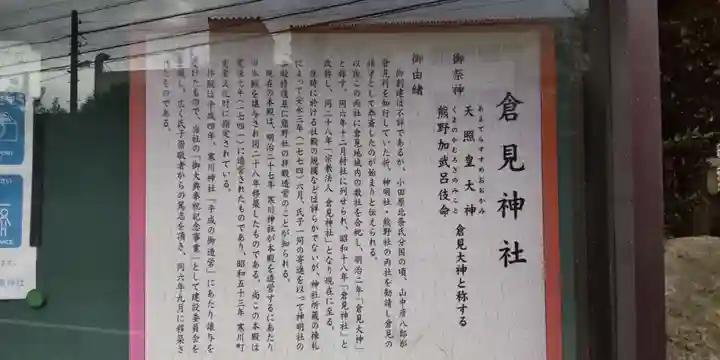 倉見神社
御祭神
あまてらすすめおおかみ
天照皇大神
くまのかむろぎのみこと
熊野加武呂伎命
倉見大神と称する
御由緒
御創建は不詳であるが、小田原北条氏分国の頃、山中彦八郎が
倉見村を知行していた折、神明社・熊野社の両社を勧請し倉見の
鎮守として奉斎したのが始まりと伝えられる。
以後この両社に倉見地域内の数社を合祀し、明治二年「倉見大神」
と称す。同六年十二月村社に列せられ、昭和十八年「倉見神社」と
改称し、同二十八年「宗教法人 倉見神社」となり現在に至る。
往時に於ける社殿の規模などは詳らかでないが、神社所蔵の棟札
によって安永三年(一七七四)六月、氏子一同の寄進を以って神明社の
に熊野社の拝殿造営のことが知られる。
現在の本殿は、明治二十七年 寒川神社が本殿を造営するにあたり
本殿を譲与され同二十八年移築したものである。尚この本殿は
七年(一七四二)に造営されたものであり、昭和五十三年 寒川町
文化財に指定されている。
拝殿は平成四年、寒川神社「平成の御造営」にあたり譲与を
けたもので、当社の「御大典奉祝記念事業」として建設委員会を
し、広く氏子崇敬者からの篤志を頂き、同六年九月に移築さ
たものである。